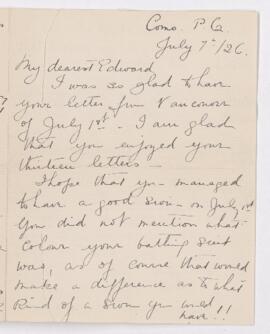 Como. P.Q.
July 7th/26.
My dearest Edward
I was so glad to have
your letter from Vancouver
of July 1st - I am glad
that you enjoyed your
thirteen letters -
I hope that you managed
to have a good swim on July 1st
You did not mention what
colour your bathing suit
was, as of course that would
make a difference as to what
kind of a swim you would
have!!